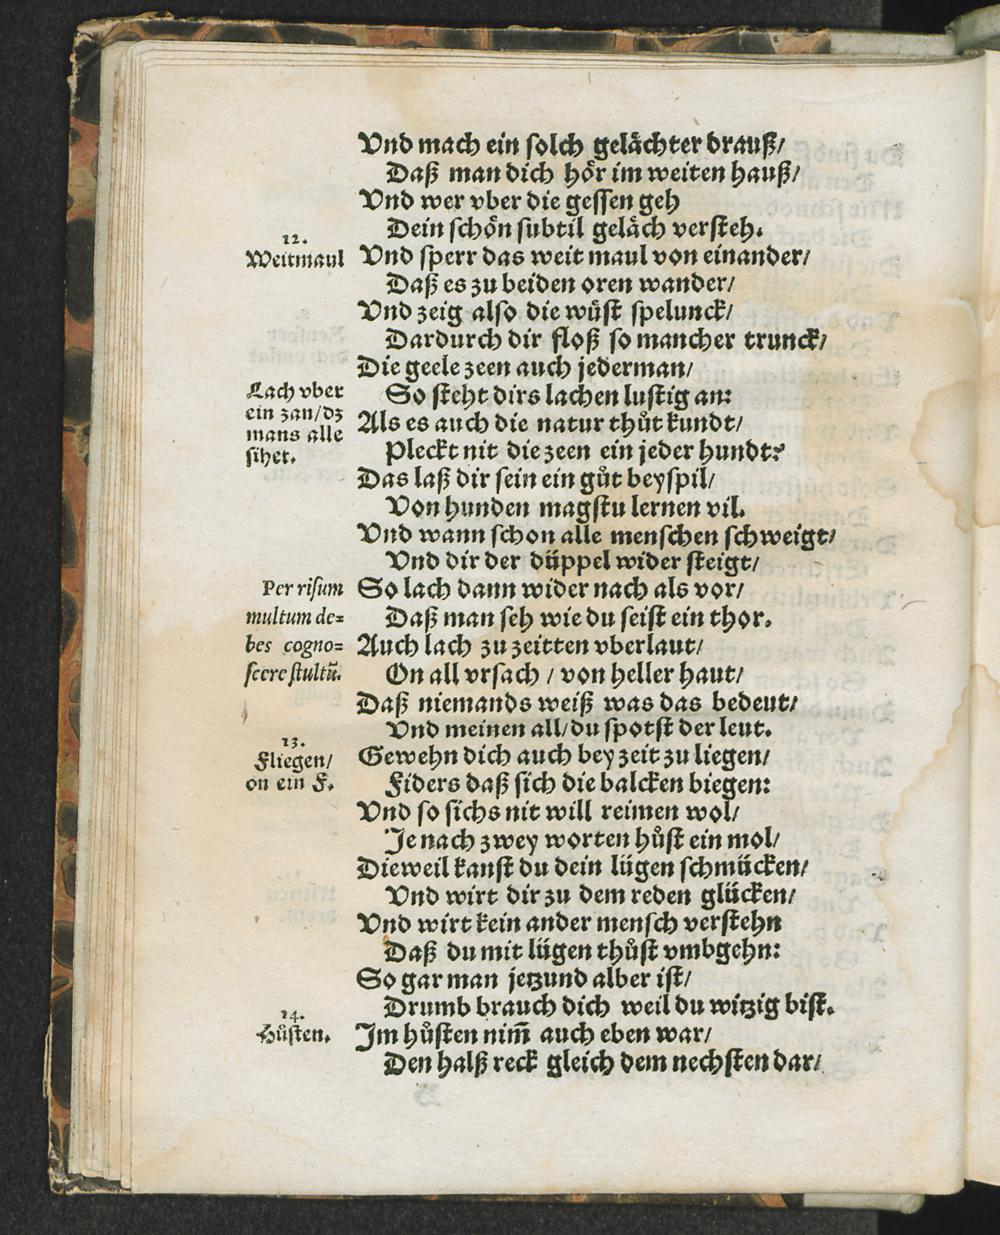 Vnd mach ein solch gelächter drauß/
Daß man dich hör im weiten hauß/
Vnd wer vber die gessen geh
Dein schön subtil geläch versteh.
12.
Weitmaul
Vnd sperr das weit maul von einander/
Daß es zu beiden oren wander/
Vnd zeig also die wüst spelunck/
Dardurch dir floß so mancher trunck/
Die geele zeen auch jederman/
Lach vber
ein zan/dz
mans alle
sihet.
So steht dirs lachen lustig an:
Als es auch die natur thůt kundt/
Pleckt nit die zeen ein jeder hundt?
Das laß dir sein ein gůt beyspil/
Von hunden magstu lernen vil.
Vnd wann schon alle menschen schweigt/
Vnd dir der düppel wider steigt/
Per risum
multum de=
bes cogno=
scere stultū.
So lach dann wider nach als vor/
Daß man seh wie du seist ein thor.
Auch lach zu zeitten vberlaut/
On all vrsach / von heller haut/
Daß niemands weiß was das bedeut/
Vnd meinen all/du spotst der leut.
13.
Fliegen/
on ein F.
Gewehn dich auch bey zeit zu liegen/
Fiders daß sich die balcken biegen:
Vnd so sichs nit will reimen wol/
Je nach zwey worten hůst ein mol/
Dieweil kanst du dein lügen schmücken/
Vnd wirt dir zu dem reden glücken/
Vnd wirt kein ander mensch verstehn
Daß du mit lügen thůst vmbgehn:
So gar man jetzund alber ist/
Drumb brauch dich weil du witzig bist.
14.
Hůsten.
Im hůsten nim̃ auch eben war/
Den halß reck gleich dem nechsten dar/